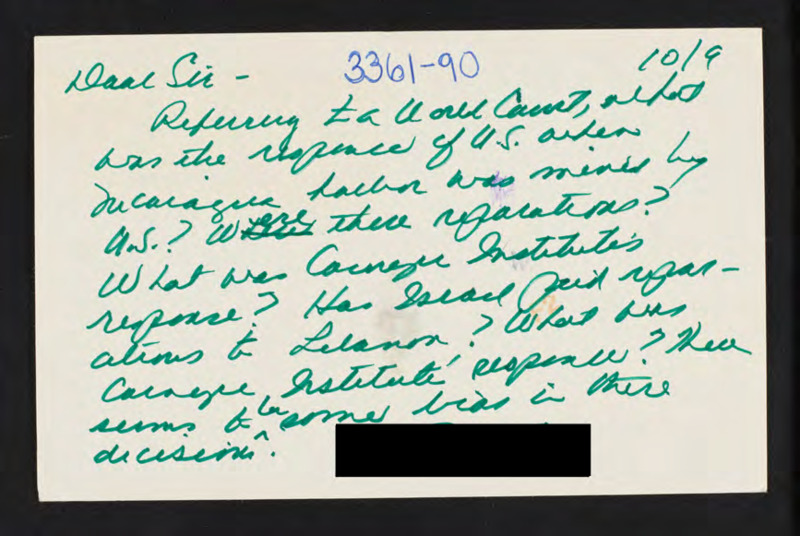 3361-90
10/9
Dear Sir -
Referring to a World Court, what
was the response of U.S. when
Nicaragua harbor was mined by
U.S.? Were there reparations?
What was Carnegie Institute's
response? Has Israel paid repar-
ations to Lebanon? What was
Carnegie Institute's response? There
seems to be some bias in there
decisions.